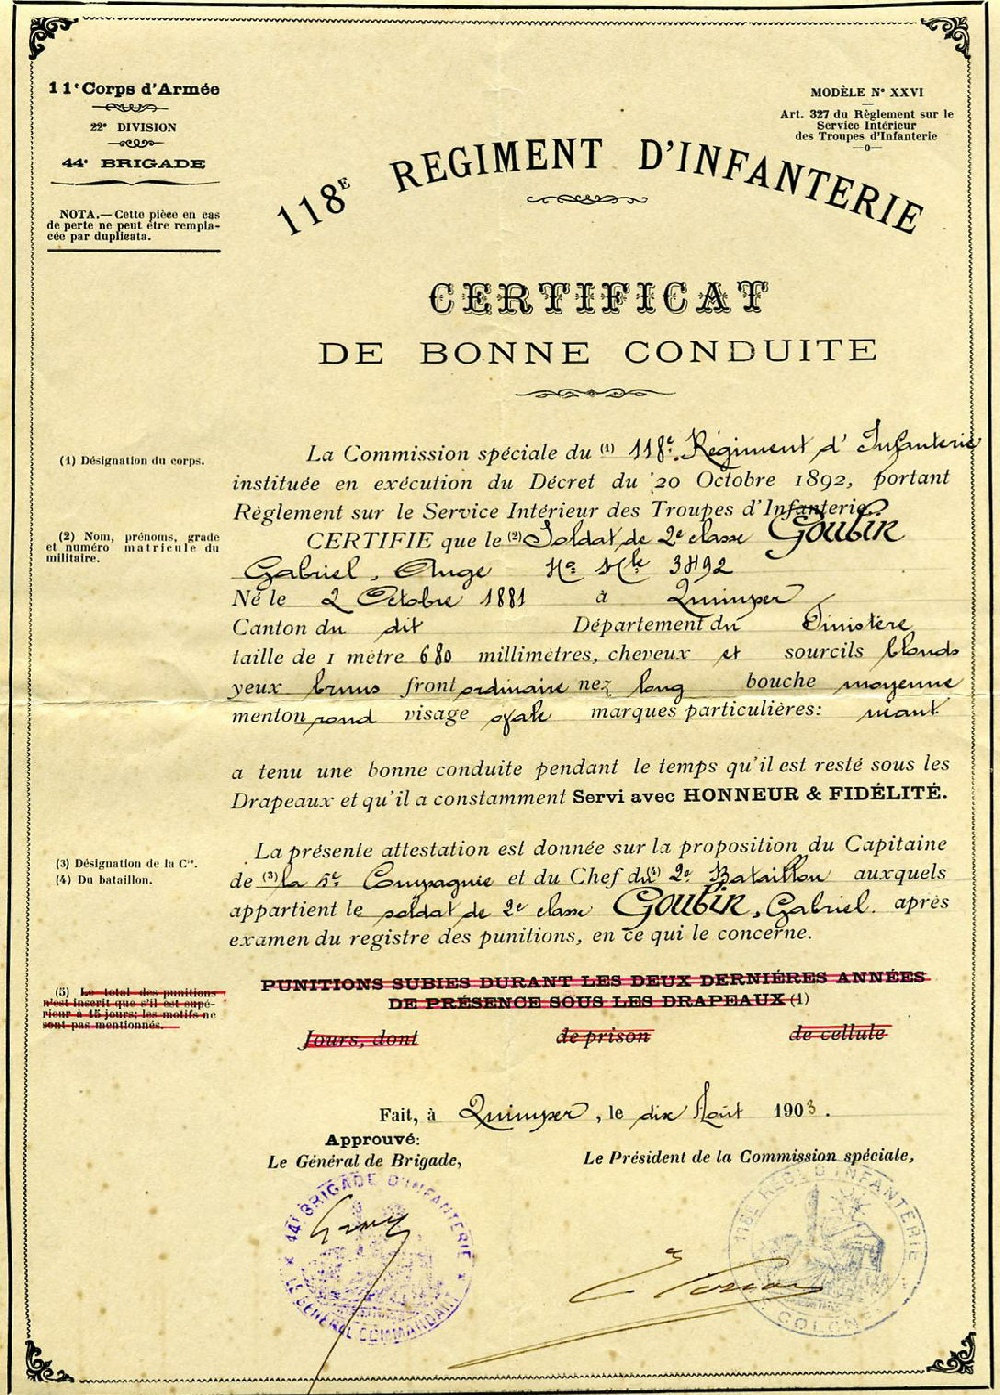 11e Corps d'Armée
22e DIVISION
44e BRIGADE
NOTA.—Cette pièce en cas
de perte ne peut être rempla-
cée par duplicata.
MODÈLE No XXVI
Art. 327 du Règlement sur le
Service Intérieur
des Troupes d'Infanterie
118E REGIMENT D'INFANTERIE
CERTIFICAT
DE BONNE CONDUITE
(1) Désignation du corps.
La Commission spéciale du (1) 118e Régiment d'Infanterie
instituée en exécution du Décret du 20 Octobre 1892, portant
Règlement sur le Service Intérieur des Troupes d'Infanterie.
(2) Nom, prénoms, grade
et numéro matricule du
militaire.
CERTIFIE que le (2) Soldat de 2e classe Goubin
Gabriel, Ange No Mle 3492
Né le 2 Octobre 1881 à Quimper
Canton du dit Département du Finistère
taille de 1 mètre 680 millimètres, cheveux et sourcils blonds
yeux bruns front ordinaire nez long bouche moyenne
menton rond visage ovale marques particulières: niant
a tenu une bonne conduite pendant le temps qu'il est resté sous les
Drapeaux et qu'il a constamment Servi avec HONNEUR & FIDÉLITÉ.
(3) Désignation de la Cie.
(4) Du bataillon.
La présente attestation est donnée sur la proposition du Capitaine
de (3) la 5e Compagnie et du Chef du 2e Bataillon auxquels
appartient le soldat de 2e classe Goubin, Gabriel. après
examen du registre des punitions, en ce qui le concerne.
(5) Le total des punitions
n'est inscrit que s'il est supé-
rieur a 15 jours; les motifs ne
sont pas mentionnés.
PUNITIONS SUBIES DURANT LES DEUX DERNIÉRES ANNÉES
DE PRÉSENCE SOUS LES DRAPEAUX (1)
Jours, dont de prison de cellule
Fait, à Quimper, le dix Août 1903.
Approuvé:
Le Général de Brigade,
Le Président de la Commission spéciale,
44e BRIGADE D'INFANTERIE
LE GÉNÉRAL COMMANDANT
118E REGt D'INFANTERIE
COLONEL